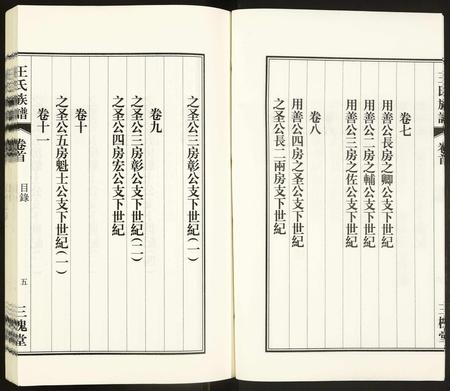 卷七
用善公長房之卿公支下世紀
用善公二房之輔公支下世紀
用善公三房之佐公支下世紀
卷八
用善公四房之圣公支下世紀
之圣公長二兩房支下世紀
之圣公三房彰公支下世紀(一)
卷九
之圣公三房彰公支下世紀(二)
之圣公四房宏公支下世紀
卷十
之圣公五房魁士公支下世紀(一)
卷十一
王氏族譜
卷首
目錄
五
三槐堂